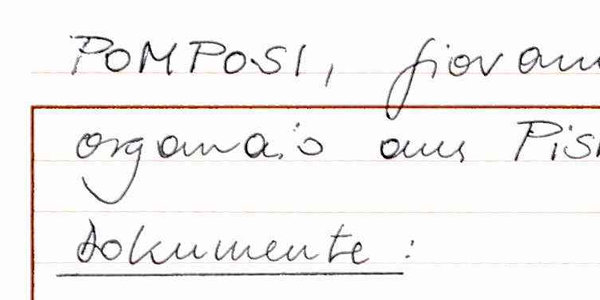 POMPOSI, Giovann
organaio aus Pis
Dokumente: